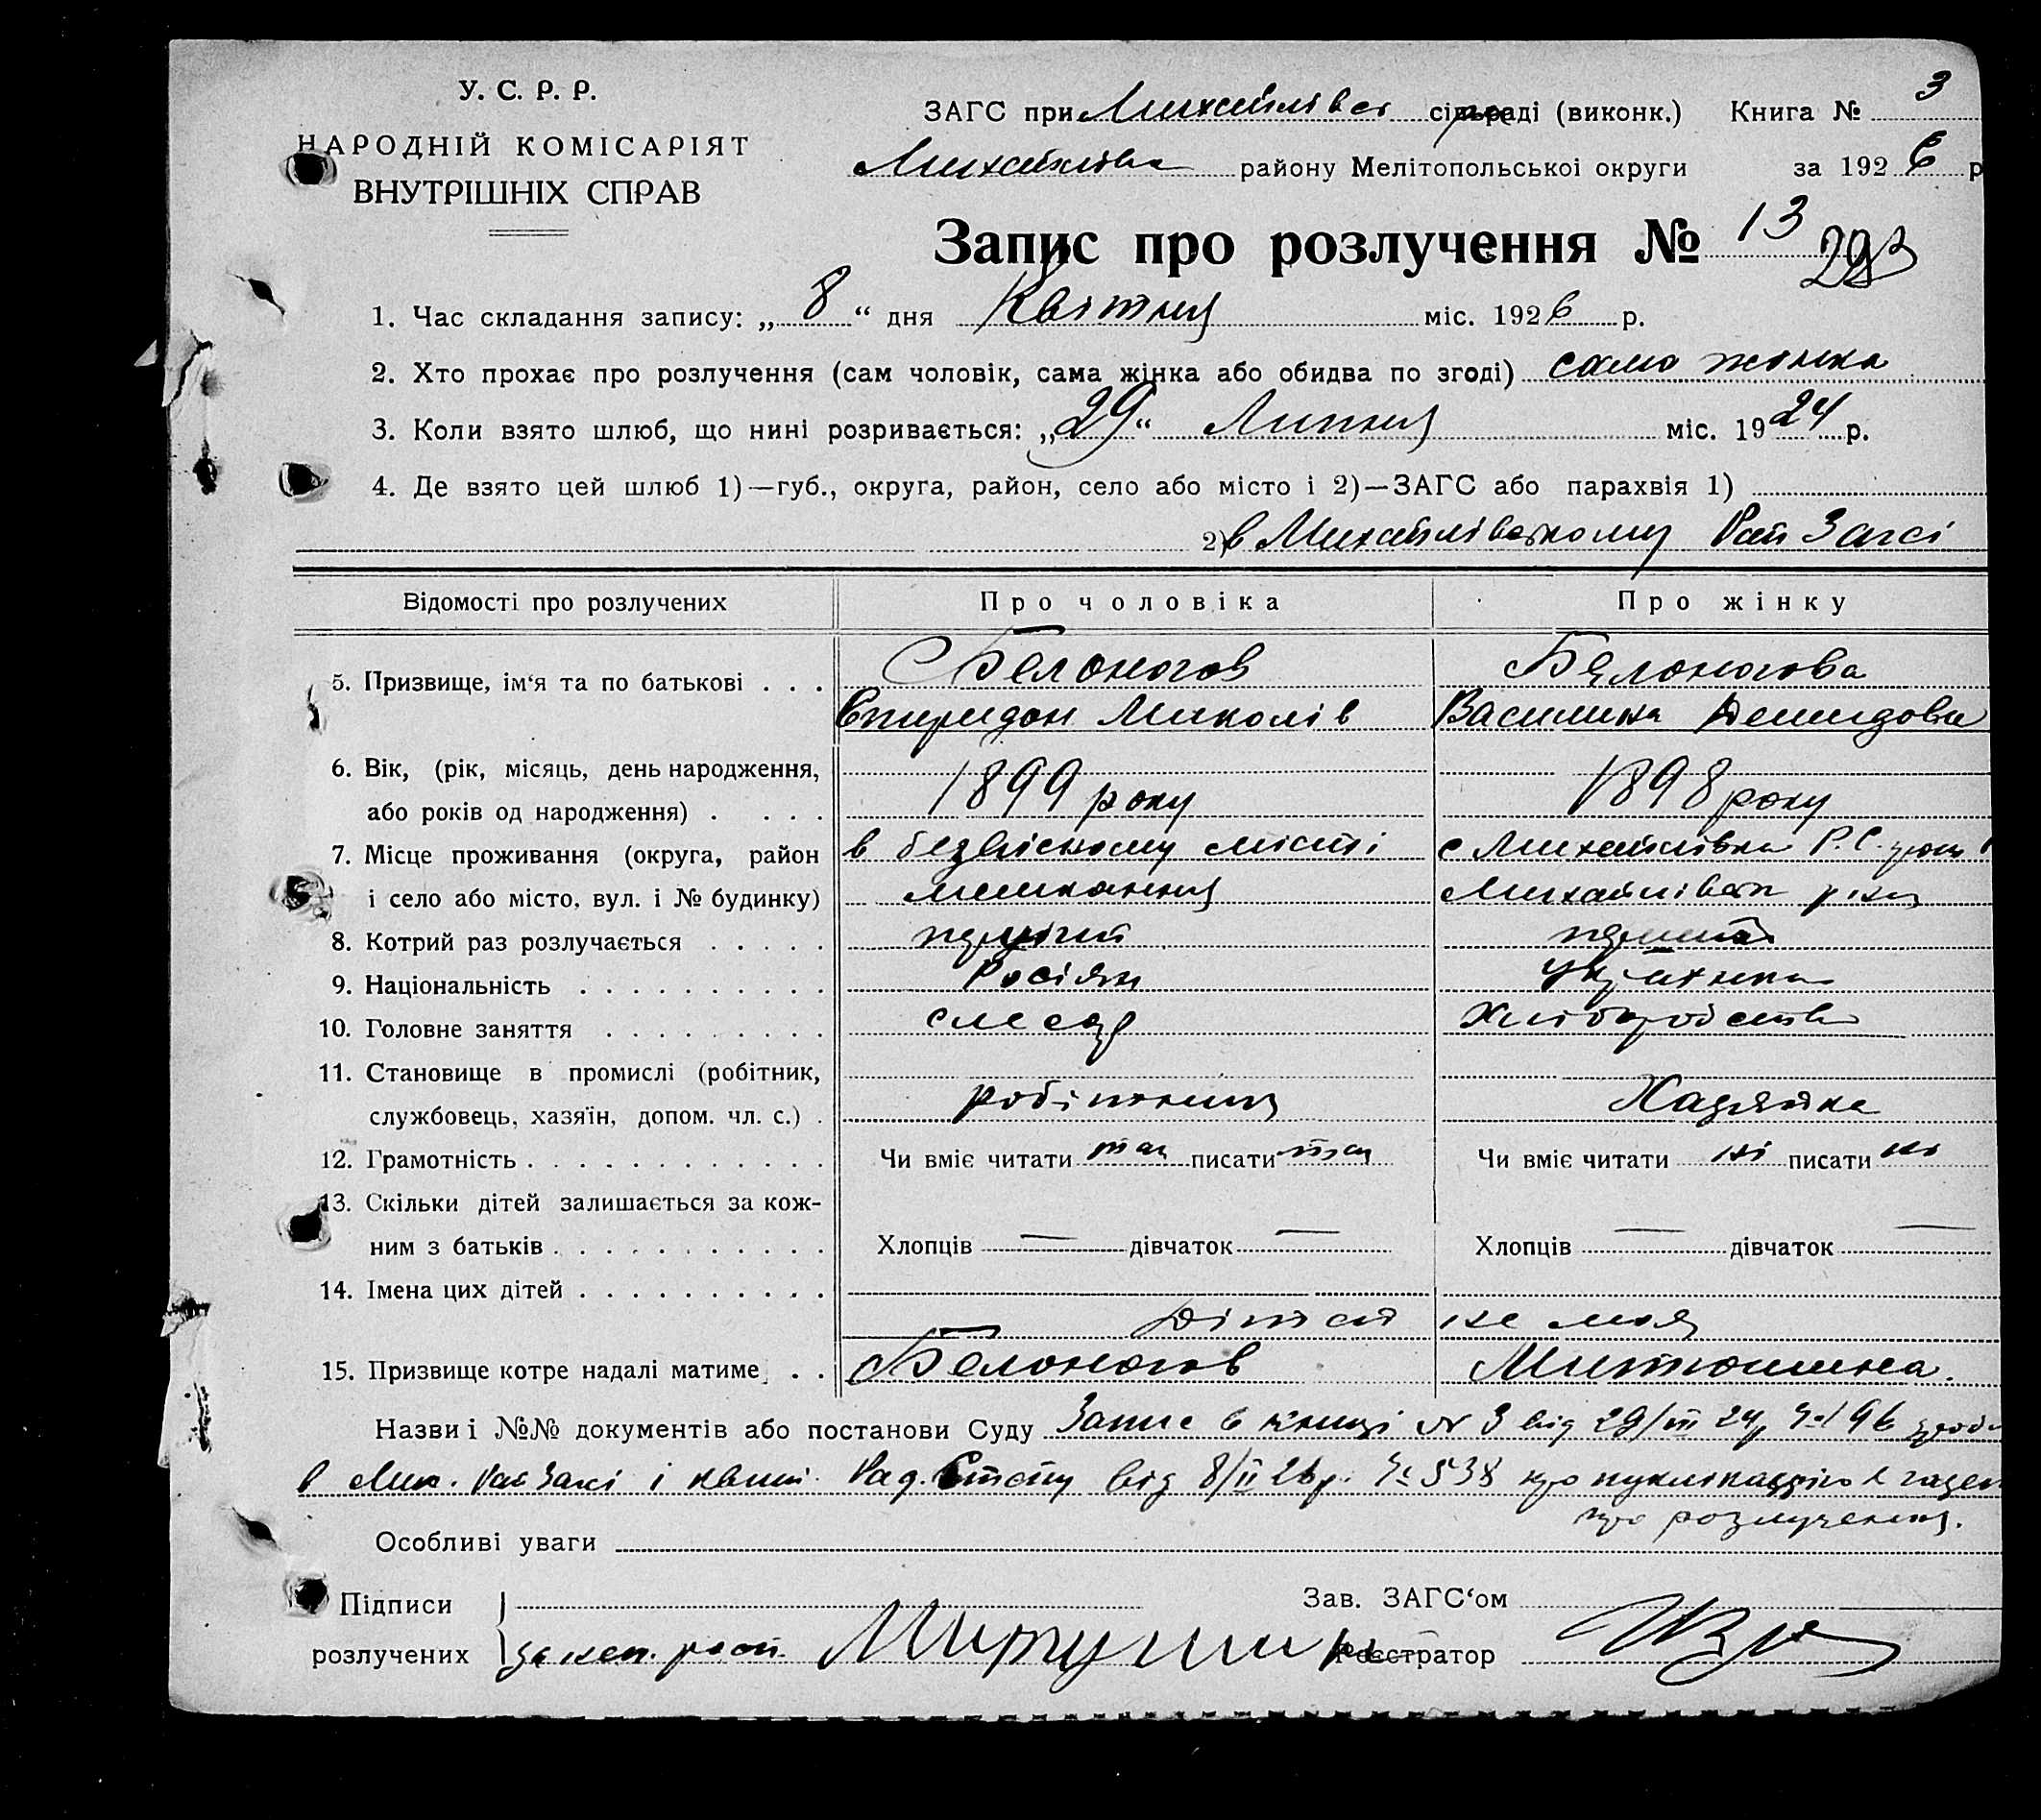 У. С. Р. Р.
НАРОДНІЙ КОМІСАРІЯТ
ВНУТРІШНІХ СПРАВ
ЗАГС при Михайлівск сільраді (виконк.) Книга № 3
Михайлівск району Мелітопольської округи за 1926 р
Запис про розлучення № 13
1. Час складання запису: „8“ дня Квітня міс. 1926 р.
2. Хто прохає про розлучення (сам чоловік, сама жінка або обидва по згоді) сама жінка
3. Коли взято шлюб, що нині розривається: „29“ Липня міс. 1924 р.
4. Де взято цей шлюб 1)—губ., округа, район, село або місто і 2)—ЗАГС або парахвія 1)
2) в Михайлівському Рай Загсі
Відомості про розлучених Про чоловіка Про жінку
5. Призвище, ім‘я та по батькові . . . Белоногов Белоногова
Спиридон Миколів Василина Демидова
6. Вік, (рік, місяць, день народження,
або років од народження) . . . . 1899 року 1898 року
7. Місце проживання (округа, район в безвісному місті с Михайлівка Р.С.
і село або місто, вул. і № будинку) мешкання Михайлівськ
8. Котрий раз розлучається . . . . . перший перший
9. Національність . . . . . . . . . . Росіян Українка
10. Головне заняття . . . . . . . . . слесар Хліборобство
11. Становище в промислі (робітник,
службовець, хазяїн, допом. чл. с.) . робітник Хазяйка
12. Грамотність . . . . . . . . . . . . Чи вміє читати так писати так Чи вміє читати ні писати ні
13. Скільки дітей залишається за кож-
ним з батьків . . . . . . . . . . . Хлопців — дівчаток — Хлопців — дівчаток —
14. Імена цих дітей . . . . . . . . . .
Дітей не має
15. Призвище котре надалі матиме . . Белоногов Митюшина.
Назви і №№ документів або постанови Суду Запис в книзі № 3 від 29/VII 24р № 196
в Мих. Рай Загсі і від 8/II 26р. № 538 про публікацію в газеті
про розлучення.
Особливі уваги
Підписи Зав. ЗАГС‘ом
розлучених за неп. росп. Митушин Реєстратор